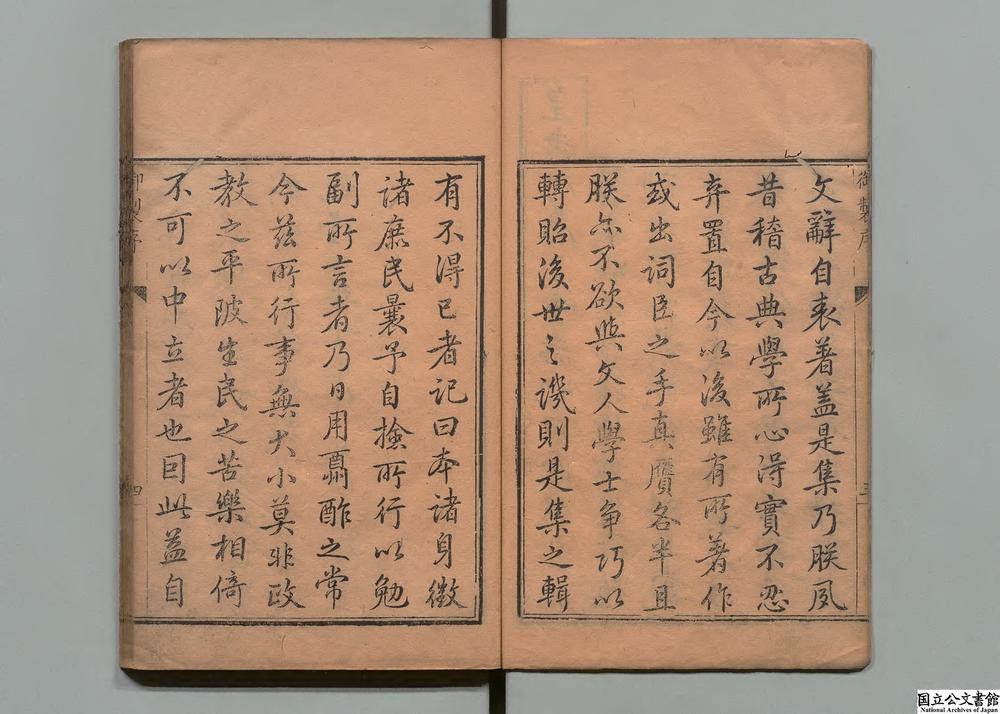 御製序
三
文辭自表著盖是集乃朕夙
昔稽古典學所心得實不忍
弃置自今以後雖有所著作
或出詞臣之手真贋各半且
朕亦不欲與文人學士争巧以
轉貽後世之譏則是集之輯
有不得已者記曰本諸身徵
諸庶民曩予自撿所行以勉
副所言者乃日用酬酢之常
今茲所行事無大小莫非政
教之平陂生民之苦樂相倚
不可以中立者也因此益自
御製序
四
国立公文書館
National Archives of Japan